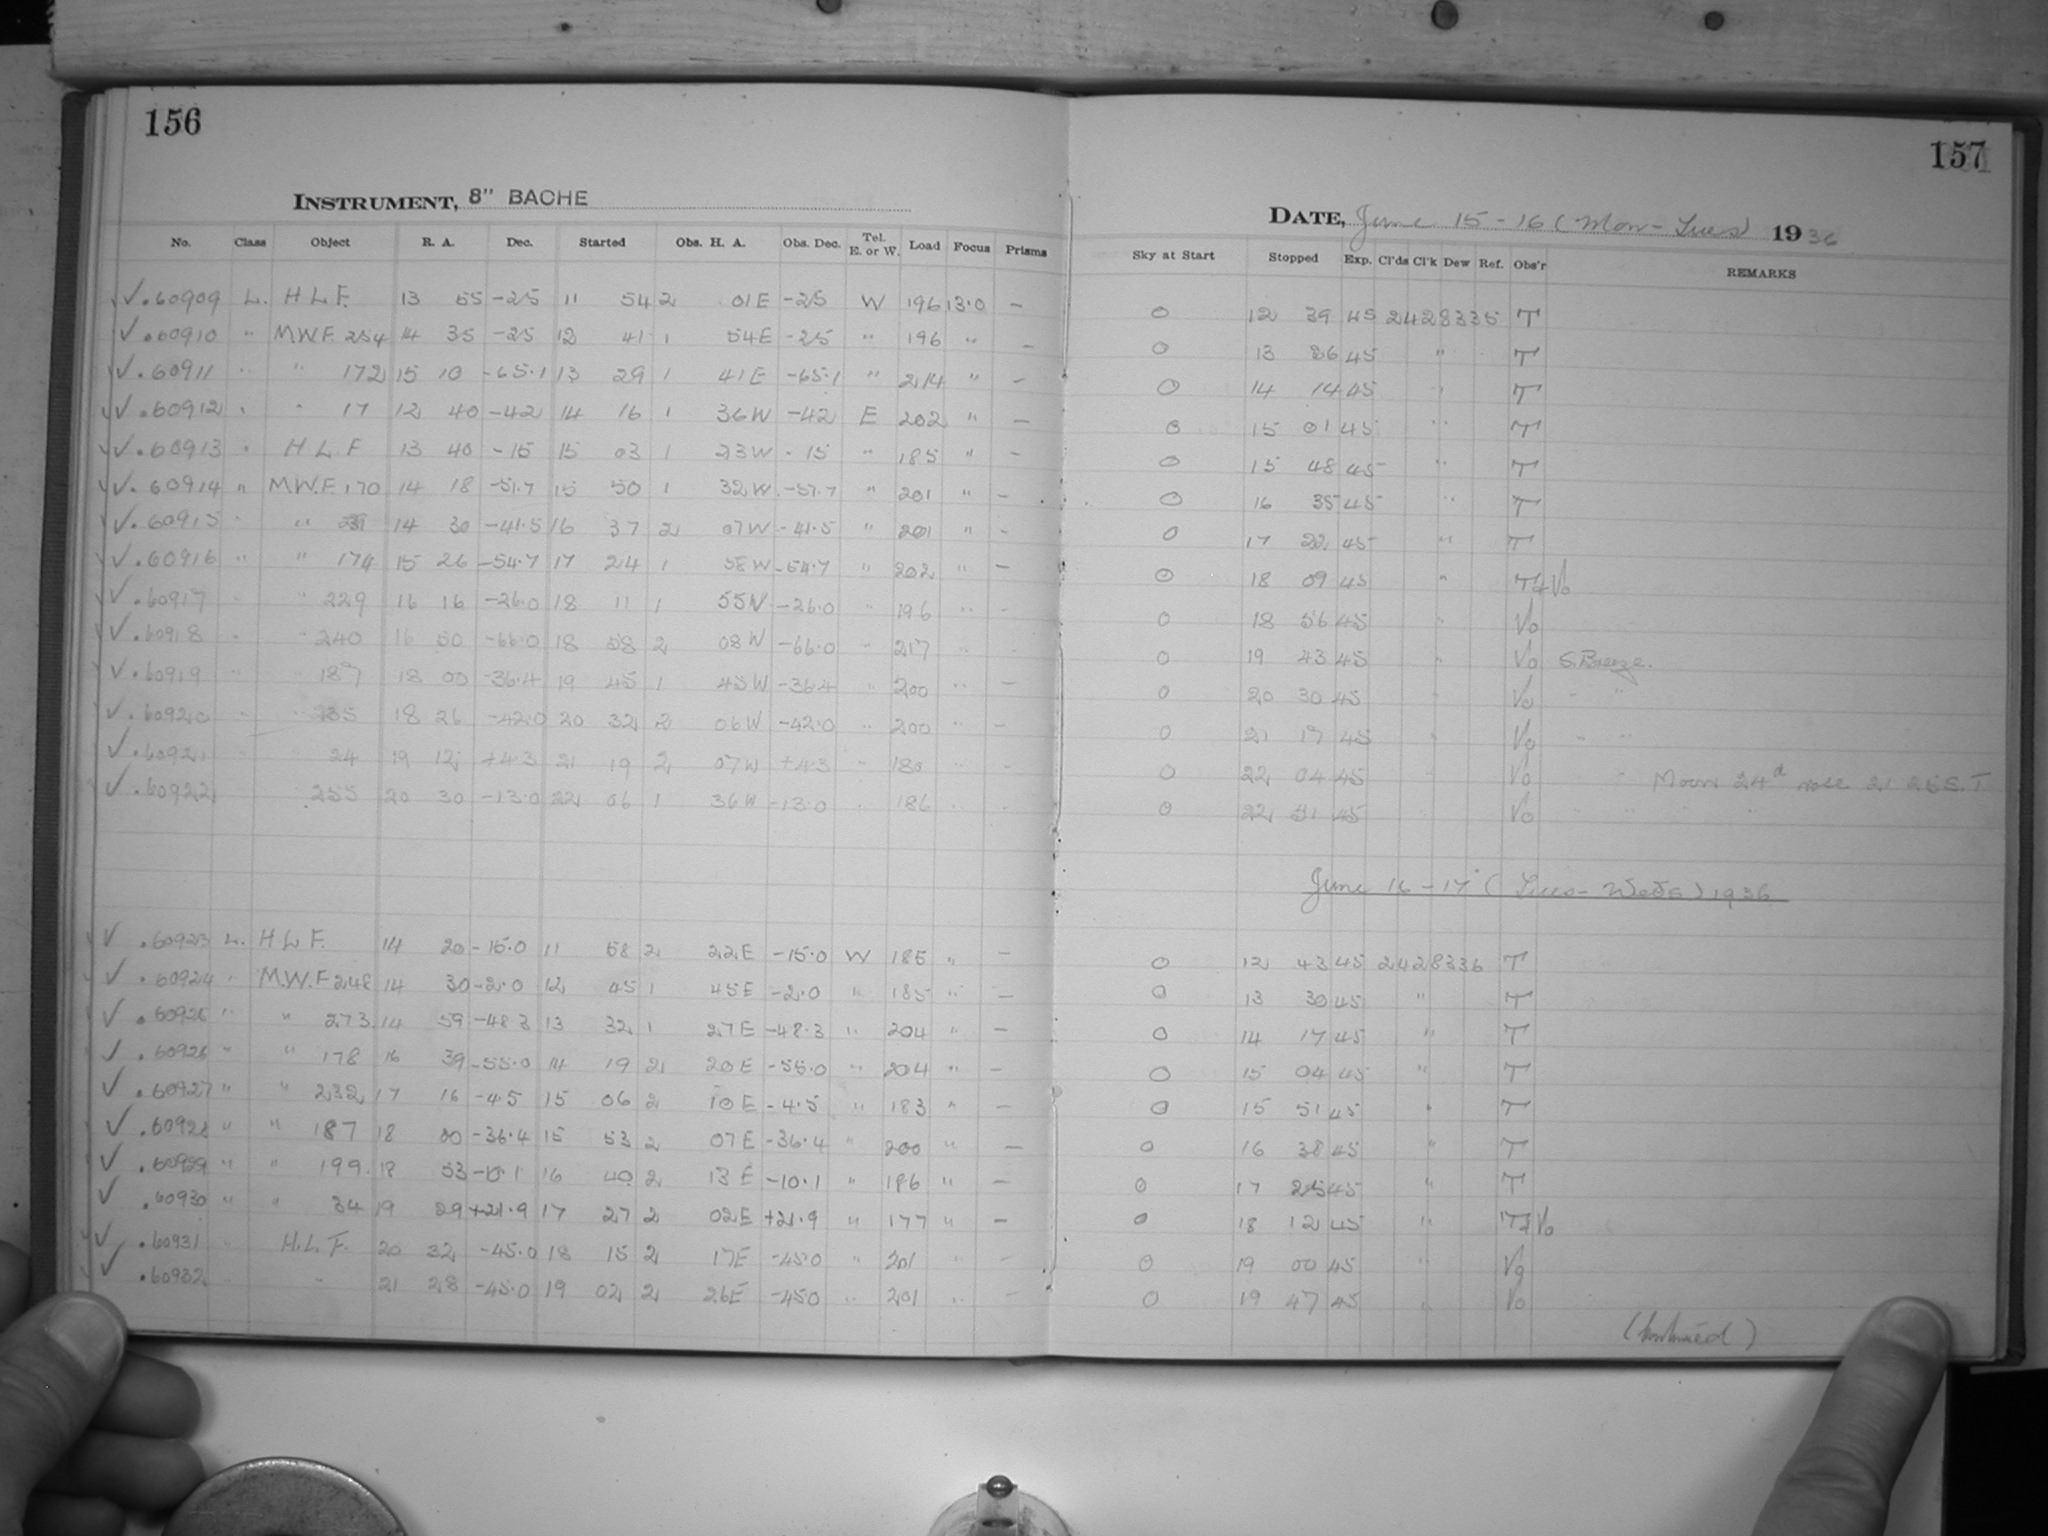 156
157
INSTRUMENT, 8" BACHE
DATE, June 15-16 (Mon-Tues) 1936
No. Class Object R. A. Dec. Started Obs. H. A. Obs. Dec. Tel. E. or W. Load Focus Prisms Sky at Start Stopped Exp. Cl'ds Cl'k Dew Ref. Obs'r REMARKS
√.60909 L. H L F. 13 55 -25 11 54 2 01E -25 W 196 13.0 - 0 12 39 45 2428335 T
√.60910 " M.W.F. 254 14 35 -25 12 41 1 54E -25 " 196 " - 0 13 26 45 " T
√.60911 " " 172 15 10 -65.1 13 29 1 41E -65.1 " 214 " - 0 14 14 45 " T
√.60912 " " 17 12 40 -42 14 16 1 36W -42 E 202 " - 0 15 01 45 " T
√.60913 " H L F 13 40 -15 15 03 1 23W -15 " 185 " - 0 15 48 45 " T
√.60914 " M.W.F. 170 14 18 -51.7 15 50 1 32W -51.7 " 201 " - 0 16 35 45 " T
√.60915 " " 14 30 -41.5 16 37 2 07W -41.5 " 201 " - 0 17 22 45 " T
√.60916 " " 174 15 26 -54.7 17 24 1 58W -54.7 " 202 " - 0 18 09 45 " T+Vo
√.60917 " " 229 16 16 -26.0 18 11 1 55W -26.0 " 196 " - 0 18 56 45 " Vo
√.60918 " " 240 16 50 -66.0 18 58 2 08W -66.0 " 217 " - 0 19 43 45 " Vo S. Breeze.
√.60919 " " 187 18 00 -36.4 19 45 1 45W -36.4 " 200 " - 0 20 30 45 " Vo " "
√.60920 " " 235 18 26 -42.0 20 32 2 06W -42.0 " 200 " - 0 21 17 45 " Vo " "
√.60921 " " 24 19 12 +4.3 21 19 2 07W +4.3 " 180 " - 0 22 04 45 " Vo " Moon 24d rose 21 25 S.T
√.60922 " " 255 20 30 -13.0 22 06 1 36W -13.0 " 186 " - 0 22 51 45 " Vo " "
June 16-17 (Tues-Weds) 1936
√.60923 L. H L F. 14 20 -15.0 11 58 2 22E -15.0 W 185 " - 0 12 43 45 2428336 T
√.60924 " M.W.F 248 14 30 -2.0 12 45 1 45E -2.0 " 185 " - 0 13 30 45 " T
√.60925 " " 273 14 59 -48.3 13 32 1 27E -48.3 " 204 " - 0 14 17 45 " T
√.60926 " " 178 16 39 -55.0 14 19 2 20E -55.0 " 204 " - 0 15 04 45 " T
√.60927 " " 232 17 16 -4.5 15 06 2 10E -4.5 " 183 " - 0 15 51 45 " T
√.60928 " " 187 18 00 -36.4 15 53 2 07E -36.4 " 200 " - 0 16 38 45 " T
√.60929 " " 199 18 53 -10.1 16 40 2 13E -10.1 " 186 " - 0 17 25 45 " T
√.60930 " " 34 19 29 +21.9 17 27 2 02E +21.9 " 177 " - 0 18 12 45 " T+Vo
√.60931 " H.L.F. 20 32 -45.0 18 15 2 17E -45.0 " 201 " - 0 19 00 45 " Vo
√.60932 " " 21 28 -45.0 19 02 2 26E -45.0 " 201 " - 0 19 47 45 " Vo
(Continued)